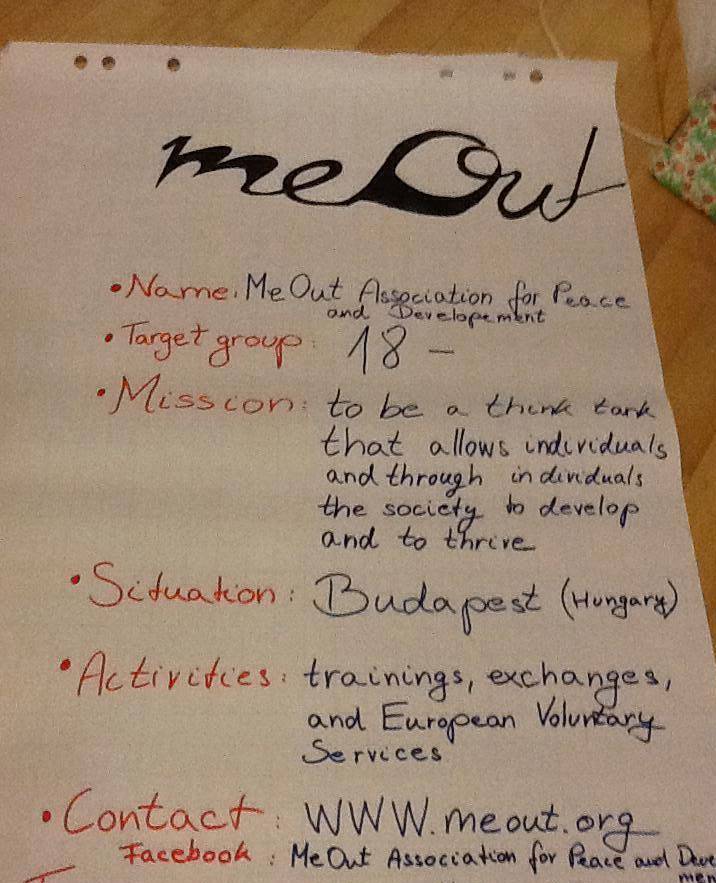 meOut
• Name: MeOut Association for Peace
and Developement
• Target group: 18 –
• Mission: to be a think tank
that allows individuals
and through individuals
the society to develop
and to thrive
• Situation: Budapest (Hungary)
• Activities: trainings, exchanges,
and European Voluntary
Services
• Contact: WWW.meout.org
Facebook: MeOut Association for Peace and Deve
men